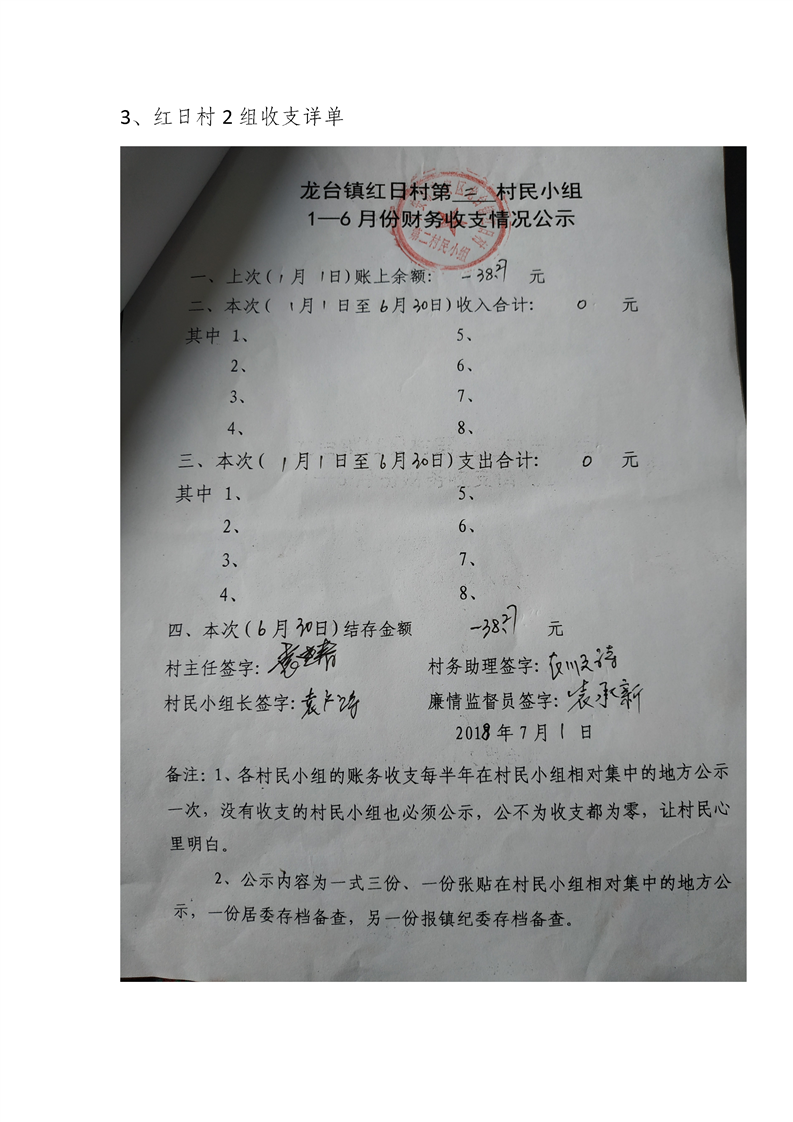 3、红日村 2 组收支详单
龙台镇红日村第 二 村民小组
1—6 月份财务收支情况公示
第二村民小组
一、上次(1月 1日)账上余额: 元
二、本次( 1月1日至6月30日)收入合计: 0 元
其中 1、 5、
2、 6、
3、 7、
4、 8、
三、本次( 1月1日至6月30日)支出合计: 0 元
其中 1、 5、
2、 6、
3、 7、
4、 8、
四、本次(6月30日)结存金额 元
村主任签字: 村务助理签字:
村民小组长签字: 廉情监督员签字:袁承新
2018年7月1日
备注:1、各村民小组的账务收支每半年在村民小组相对集中的地方公示
一次,没有收支的村民小组也必须公示,公不为收支都为零,让村民心
里明白。
2、公示内容为一式三份、一份张贴在村民小组相对集中的地方公
示,一份居委存档备查,另一份报镇纪委存档备查。